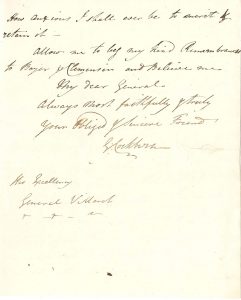 How anxious I shall ever be to merit &
retain it –
Allow me to beg my kind Remembrances
to Bayer & Clemensin and Believe me
My dear General
Always Most faithfully & truly
Your Oblig'd & Sincere Friend
G Cockburn
His Excellency
General